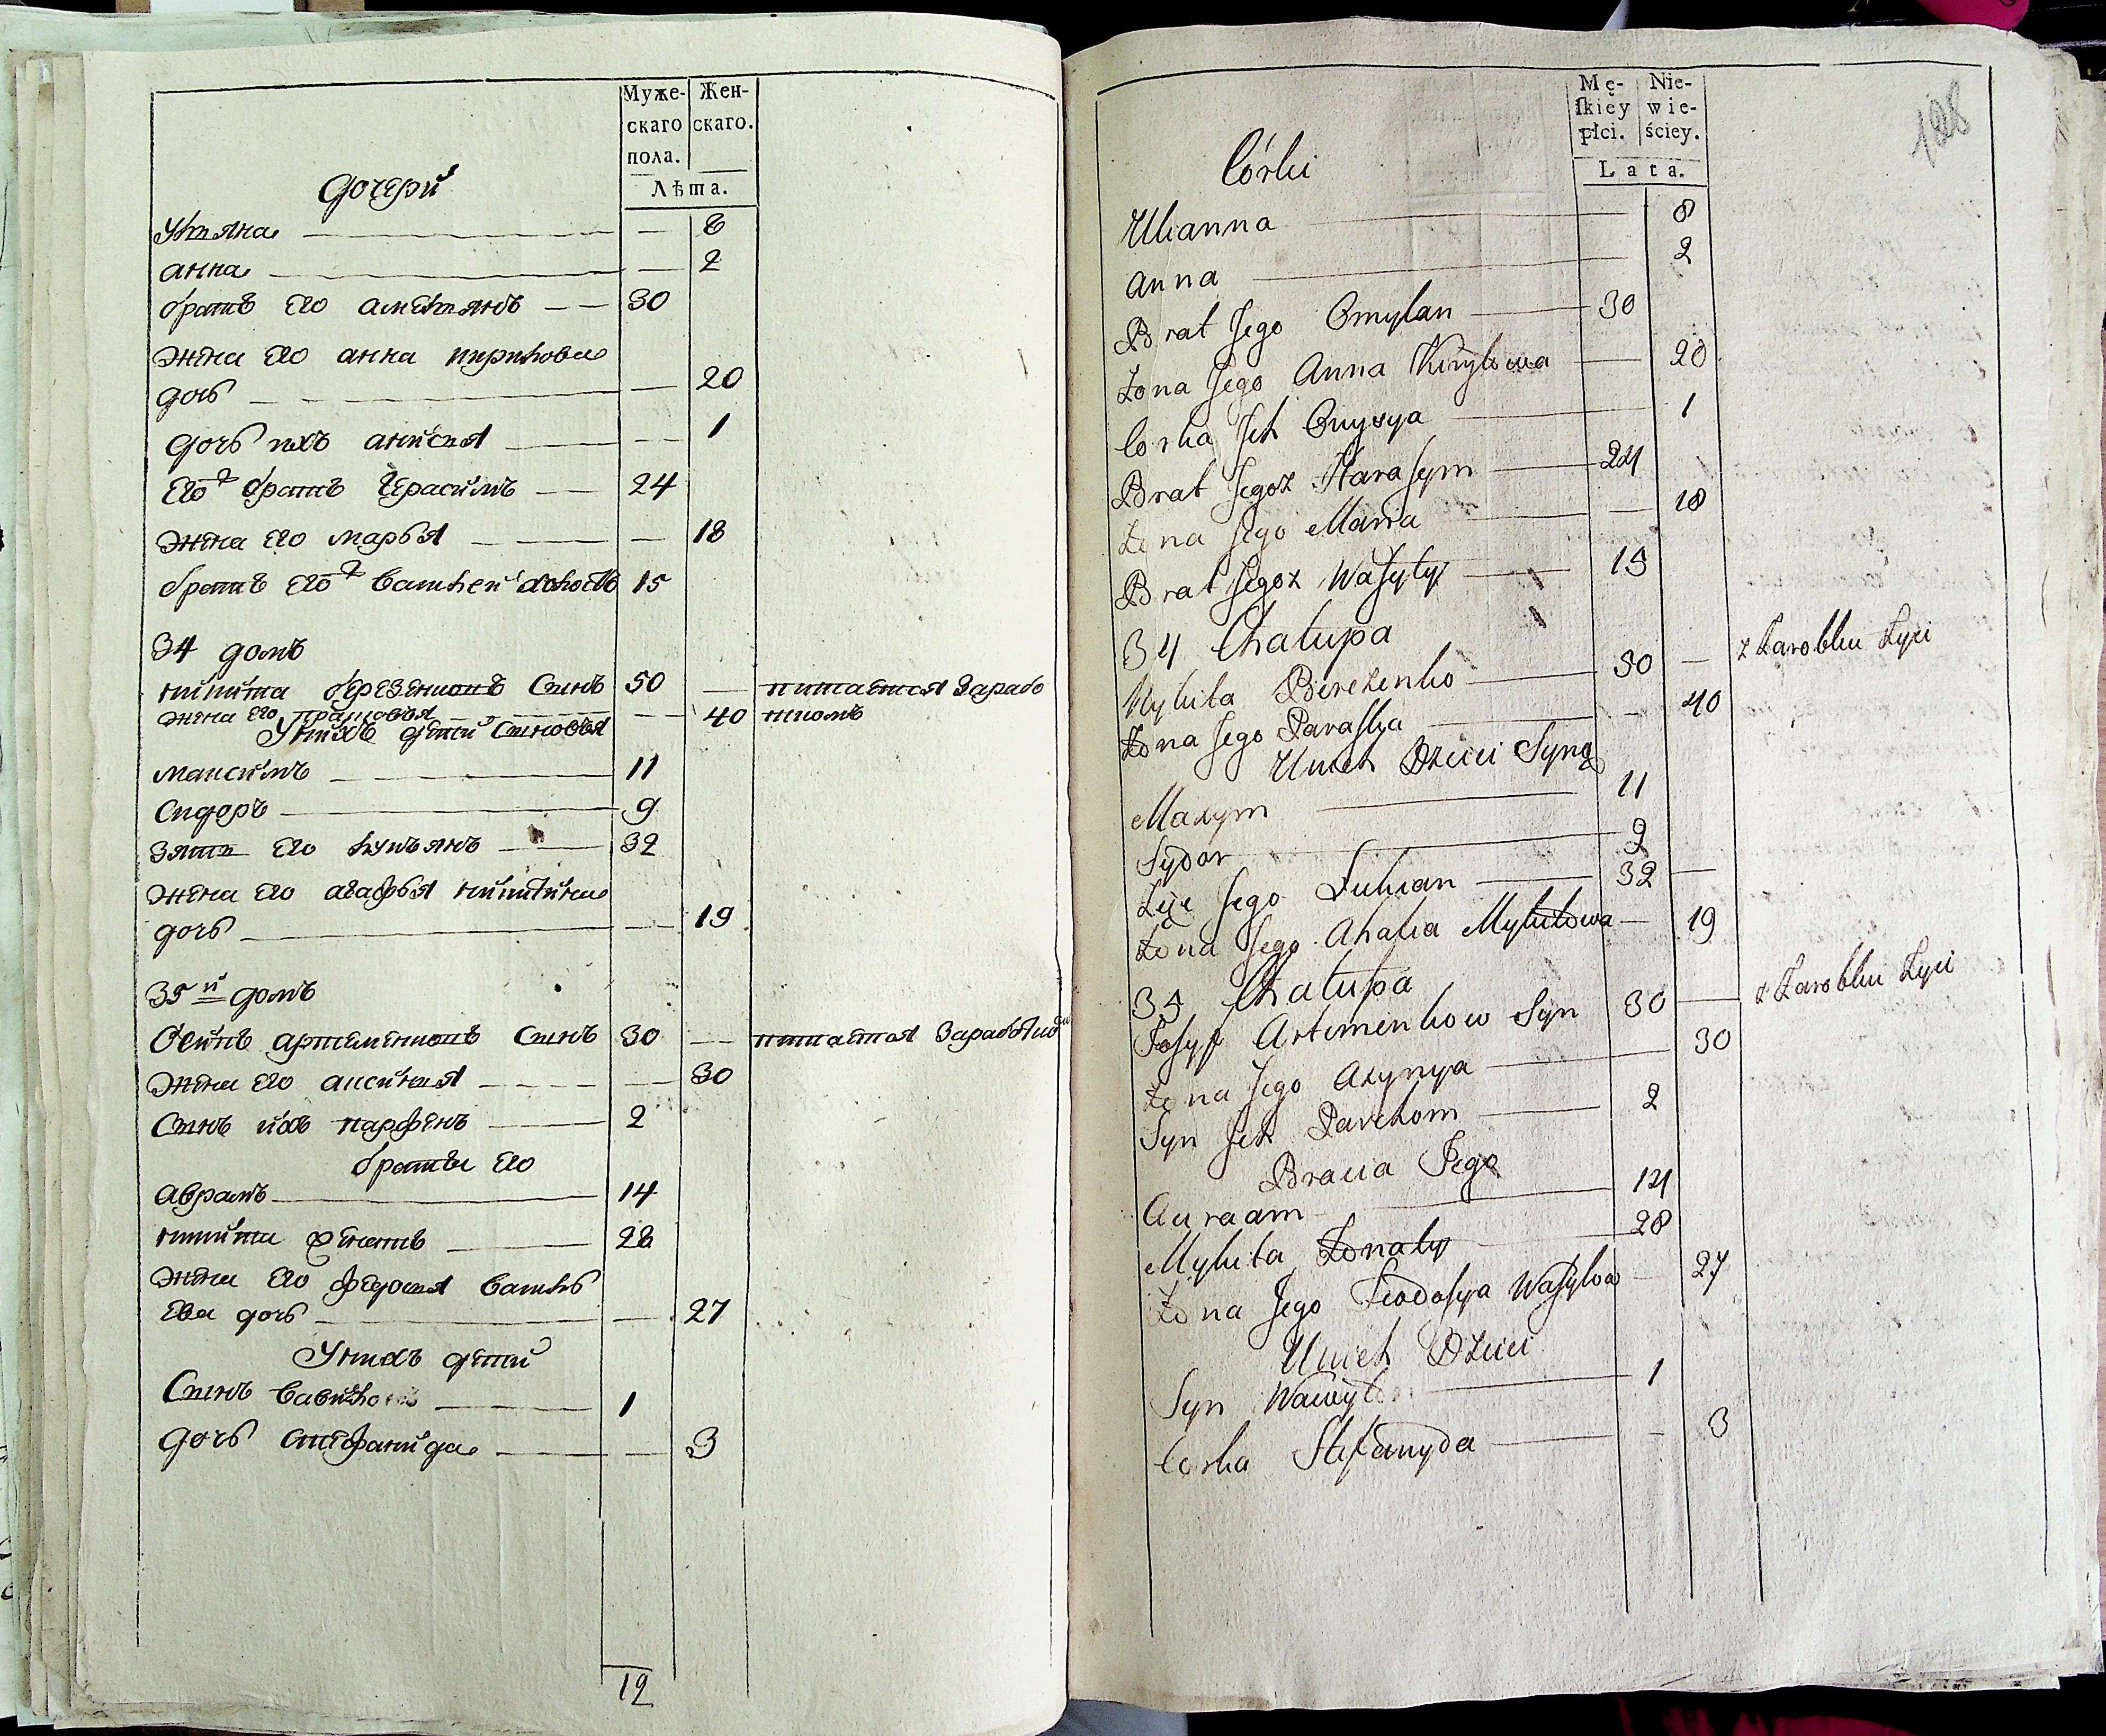 Муже-
скаго
пола.
Жен-
скаго.
Лѣта.
дочери
Ульяна — — 8
анна — — 2
братъ Его амельянъ — 30
жена Его анна кирилова
дочь — — 20
дочь ихъ анисия — — 1
Его ж братъ Герасимъ — 24
жена Его марья — — 18
братъ Его ж василей холостъ 15
34 домъ
никита березенковъ Сынъ 50 — питается зарабо
жена Его прасковья — — 40 ткомъ
У нихъ дети Сыновья
максимъ — 11
Сидоръ — 9
зять Его лукъянъ — 32
жена Его агафья никитина
дочь — — 19
35 й домъ
Осипъ артеменковъ Сынъ 30 — питается Заработко
жена Его аксиния — — 30
Сынъ ихъ парфенъ — 2
братья Его
аврамъ — 14
никита женатъ — 28
жена Его федосия василь
Ева дочь — — 27
У нихъ дети
Сынъ вавило — 1
дочь стефанида — — 3
12
Mę-
ſkiey
płci.
Nie-
wie-
ściey.
Lata.
128
Córki
Ulianna — 8
Anna — 2
Brat Jego Omylan — 30
Żona Jego Anna Kiryłowa — 20
Corka Jch Onysya — 1
Brat Jegoż Haraſym — 24
Żona Jego Maria — 18
Brat Jegoż Waſyly — 15
34 Chałupa
Mykita Berezenko — 50 — z Zarobku Żyie
Żona Jego Paraſka — 40
U nich Dzieci Syny
Maxym — 11
Sydor — 9
Zięć Jego Lukian — 32 —
Żona Jego Ahafia Mykitowa — 19
35 Chałupa
Josyp Artemenkow Syn 30 — z Zarobku Żyie
Żona Jego Axynya — 30
Syn Jch Parchom — 2
Bracia Jego
Auraam — 14
Mykita Żonaty — 28
Żona Jego Feodosya Waſylowa — 27
U nich Dzieci
Syn Wawyło — 1
Corka Stefanyda — — 3